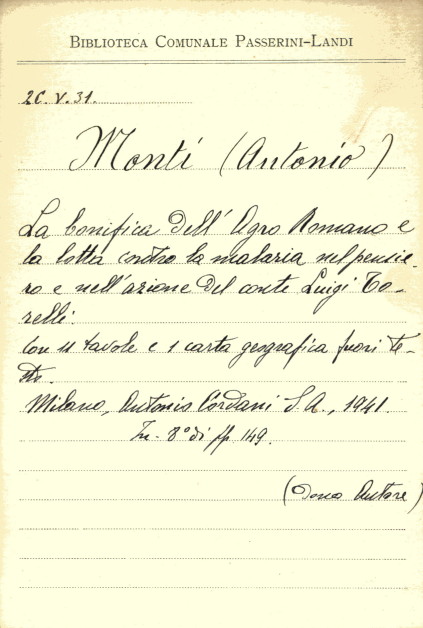 BIBLIOTECA COMUNALE PASSERINI-LANDI
2C.V.31.
Monti (Antonio)
La bonifica dell' Agro Romano e
la lotta contro la malaria nel pensie-
ro e nell'azione del conte Luigi To-
relli.
Con 11 tavole e 1 carta geografica fuori te-
sto.
Milano, Antonio Cordani S.A., 1941.
In-8° di pp 149.
(Dono Autore)